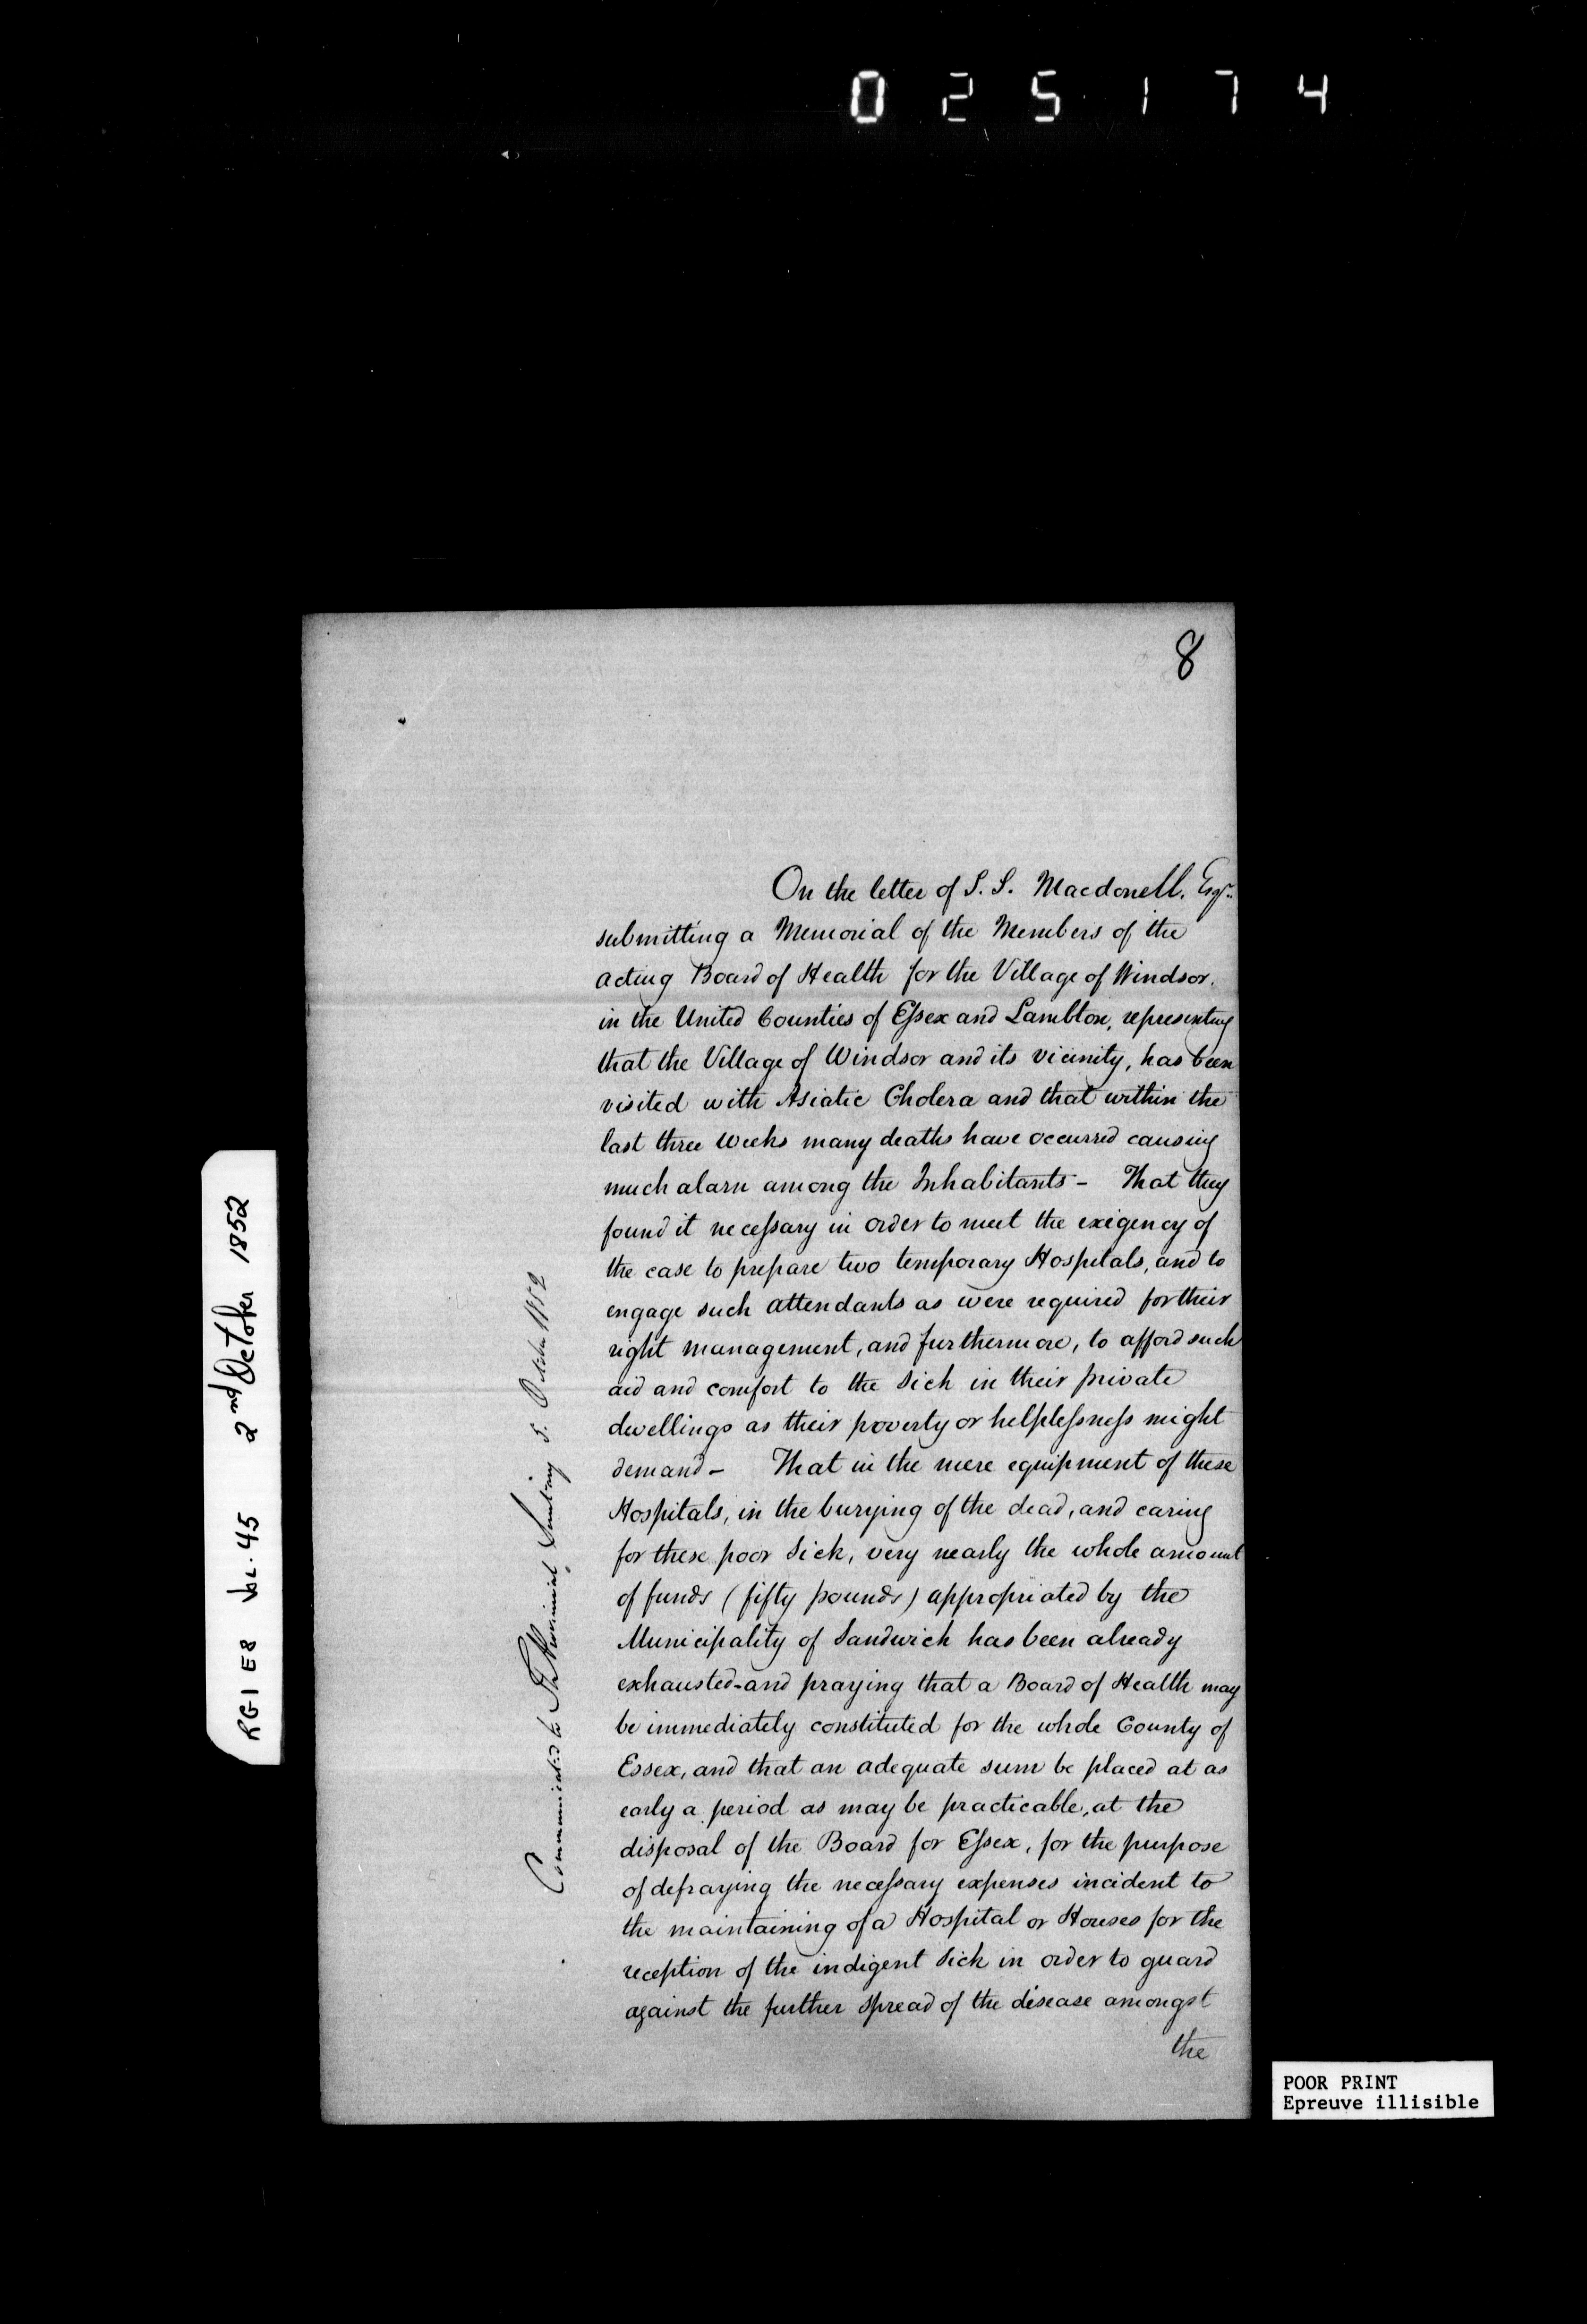 025174
8
On the letter of S. S. Macdonell, Esqr.
submitting a Memorial of the Members of the
acting Board of Health for the Village of Windsor.
in the United Counties of Essex and Lambton, representing
that the Village of Windsor and its vicinity, has been
visited with Asiatic Cholera and that within the
last three Weeks many deaths have occurred causing
much alarm among the Inhabitants - That they
found it necessary in order to meet the exigency of
the case to prepare two temporary Hospitals, and to
engage such attendants as were required for their
right management, and furthermore, to afford such
aid and comfort to the Sick in their private
dwellings as their poverty or helplessness might
demand - That in the mere equipment of these
Hospitals, in the burying of the dead, and caring
for these poor Sick, very nearly the whole amount
of funds (fifty pounds) appropriated by the
Municipality of Sandwich has been already
exhausted - and praying that a Board of Health may
be immediately constituted for the whole County of
Essex, and that an adequate sum be placed at as
early a period as may be practicable, at the
disposal of the Board for Essex, for the purpose
of defraying the necessary expenses incident to
the maintaining of a Hospital or Houses for the
reception of the indigent Sick in order to guard
against the further Spread of the disease amongst
the
Communicated to The Provincial 5. October 1852
RG1 E8 Vol. 45 2nd October 1852
POOR PRINT
Epreuve illisible